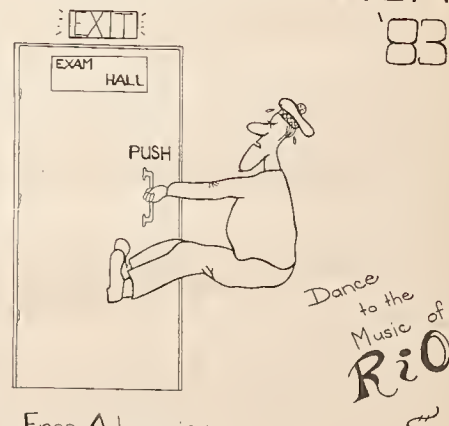 EXIT
'83
EXAM
HALL
PUSH
Dance
to the
Music of
RiO